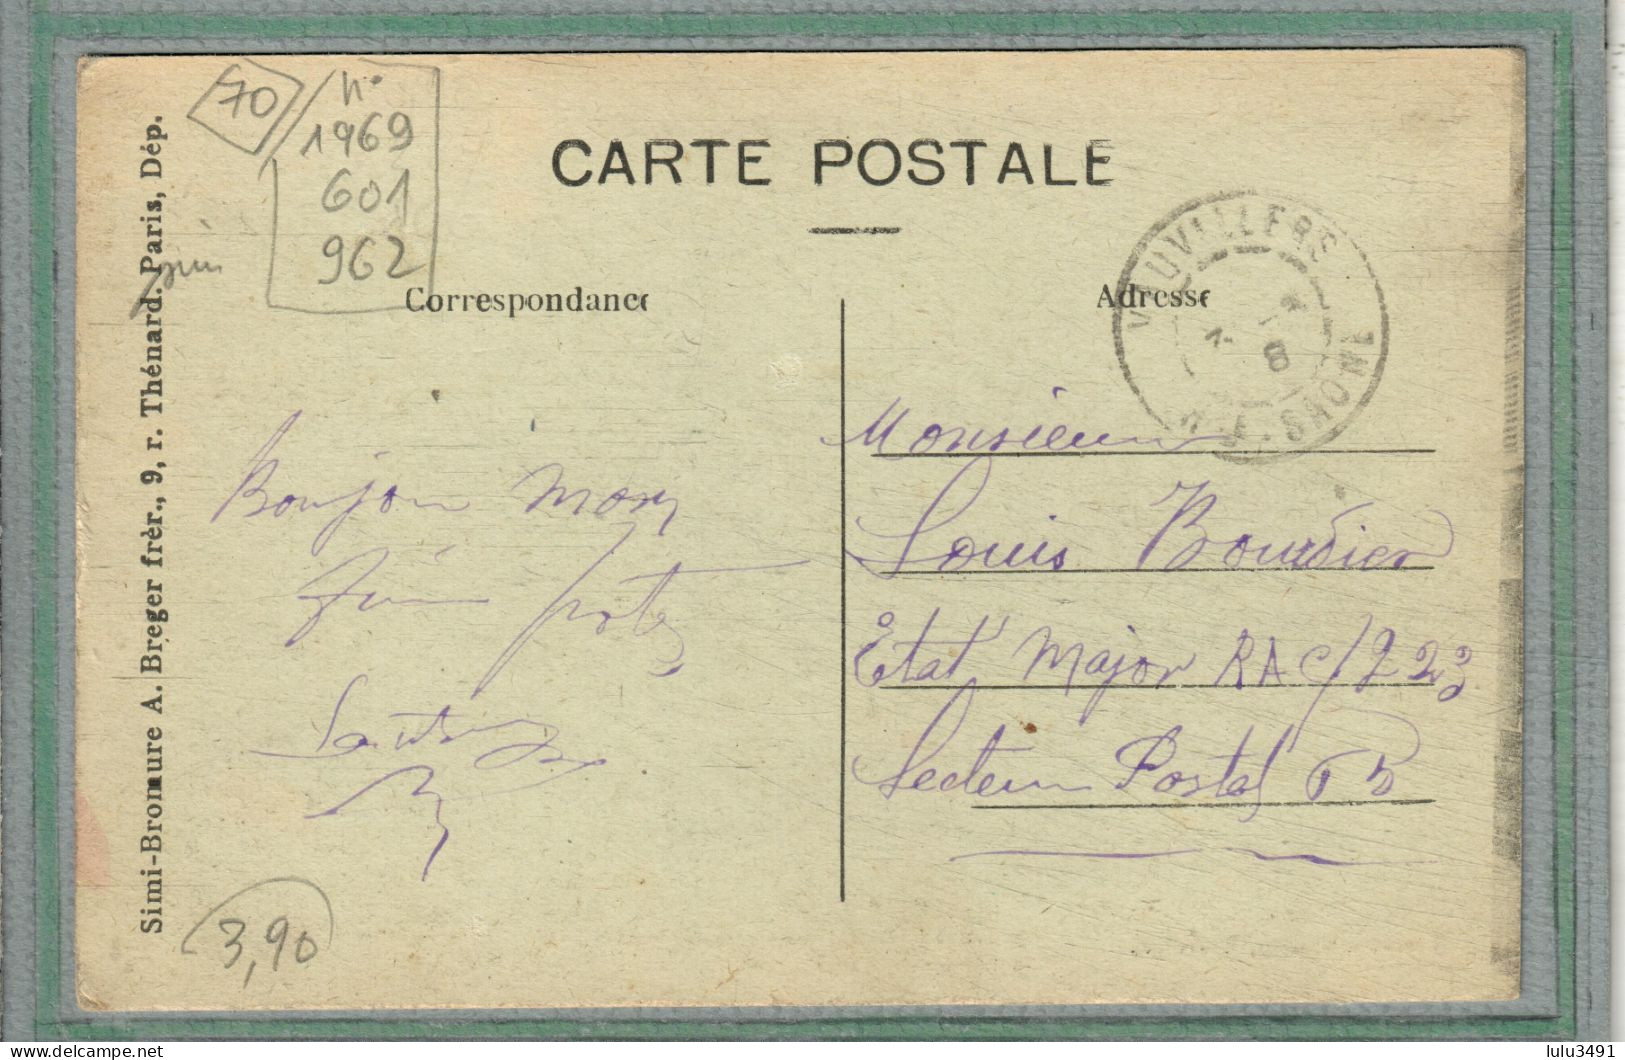 70
n°
1969
601
962
CARTE POSTALE
Correspondance
Adresse
VAUVILLERS
8
Hte SAONE
Simi-Bromure A. Breger frèr., 9, r. Thénard. Paris, Dép.
Bonjour Mon
Monsieur
Louis Bourdier
Etat Major RAC/223
Secteur Postal
3,90
lulu3491